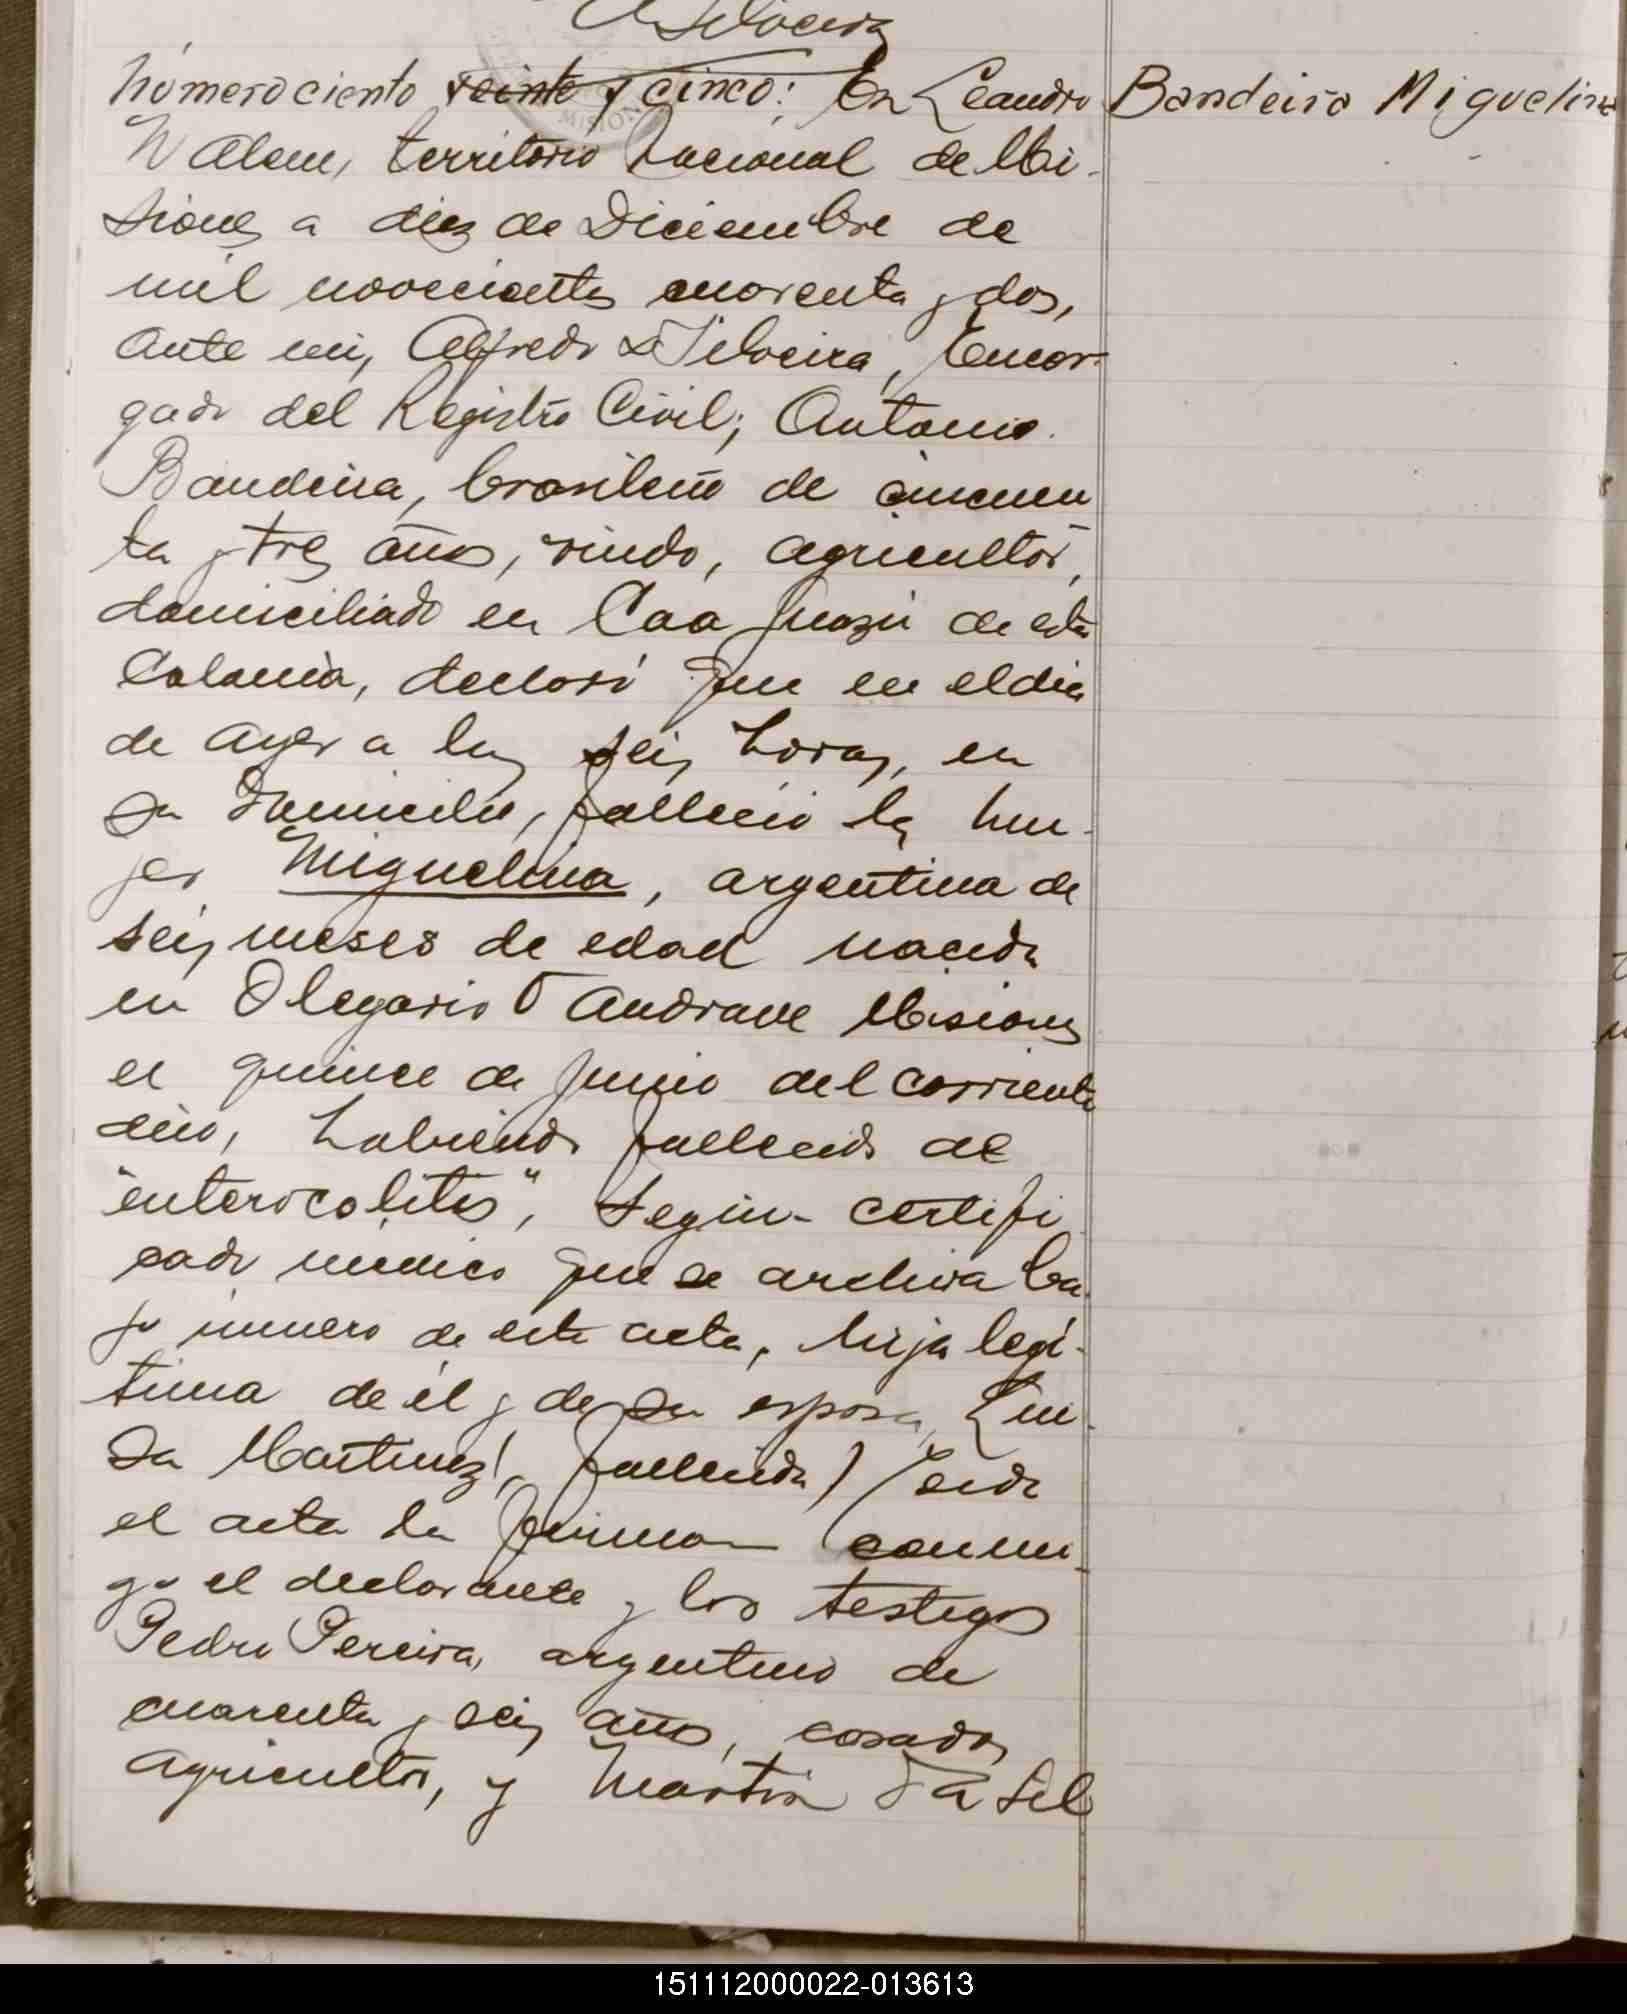 A. Silveira
Número ciento veinte y cinco: En Leandro
Bandeira Miguelina
N Alem, territorio Nacional de Mi-
siones a diez de Diciembre de
mil novecientos cuarenta y dos,
ante mi, Alfredo Silveira, Encar-
gado del Registro Civil; Antonio
Bandeira, brasileño de cincuen
ta y tres años, viudo, agricultor,
domiciliado en Caa Guazú de esta
Colonia, declaró que en el dia
de ayer a las seis horas, en
su domicilio, falleció la mu-
jer Miguelina, argentina de
seis meses de edad nacida
en Olegario V Andrade Misiones
el quince de Junio del corriente
año, habiendo fallecido de
"enterocolitis", según certifi
cado médico que se archiva ba
jo número de este acta, hija legí-
tima de él y de su esposa Lui-
sa Martinez, fallecida) Leida
el acta la firman conmi-
go el declarante y los testigos
Pedro Pereira, argentino de
cuarenta y seis años, casado,
agricultor, y Martin Da Sil
151112000022-013613